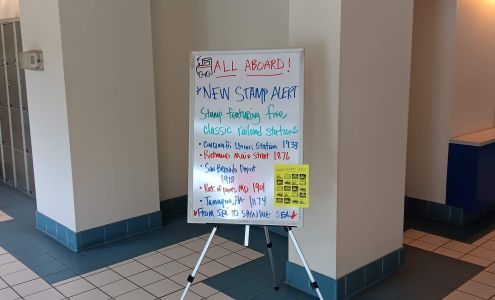 ALL ABOARD!
NEW STAMP ALERT
Stamp featuring five
classic railroad stations
• Cincinnati Union Station 1933
• Richmond Main Street 1876
• San Bernardo Depot
1918
• Point of MD 1901
• Tamaqua, PA 1874
FROM SEA TO SHINING SEA